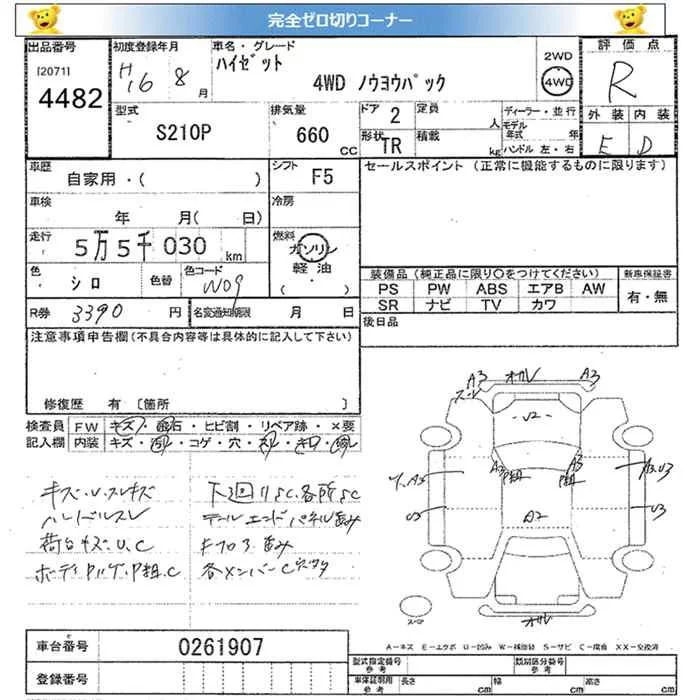 完全ゼロ切りコーナー
出品番号 初度登録年月 車名・グレード 評価点
[2071] H16 8 月 ハイゼット 2WD
4482 4WD ノウヨウパック 4WD R
型式 排気量 ドア 2 定員 人 ディーラー・並行 外装 内装
S210P 660 CC 形状 TR 積載 kg モデル年式 年 E D
ハンドル 左・右
車歴 シフト F5 セールスポイント (正常に機能するものに限ります)
自家用・( )
車検 年 月( 日) 冷房
走行 5万5千030 km 燃料 ガソリン
軽油
( ・ )
色 シロ 色替 色コード W09
装備品 (純正品に限り○をつけてください) 新車保証書
PS PW ABS エアB AW 有・無
SR ナビ TV カワ
R券 3390 円 名変通知期限 月 日
後日品
注意事項申告欄 (不具合内容等は具体的に記入して下さい)
修復歴 有 [箇所 ]
検査員 FW キズ・飛石・ヒビ割・リペア跡・×要
記入欄 内装 キズ・コゲ・穴
A3 オサレ A3
U2
A3 P組 A3 P組
A3 U3
U3 A2 U3
キズ・U・スレキズ 下回りSC.各所SC
テールエンドパネル歪み
荷台キズ.U.C フロア歪み
P組.C 各メンバーC
オサレ
スペア
A-キズ E-エクボ U-凹み W-補修跡 S-サビ C-腐食 XX-交換済
車台番号 0261907
型式指定番号 参考 類別区分番号 参考
登録番号
車体証明用 参考 長さ cm 幅 cm 高さ cm